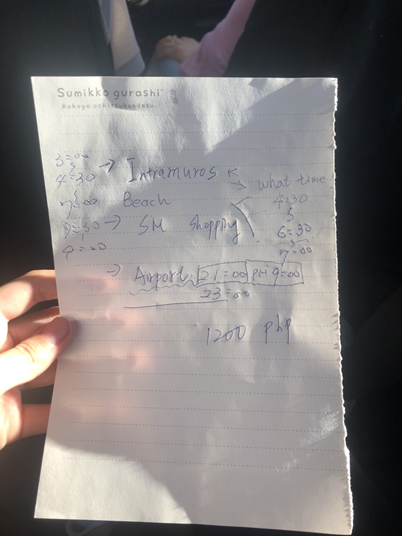 Sumikko gurashi
3:00
4:30 → Intramuros
→ what time
7:00 Beach
4:30
→ SM Shopping
6:30
7:00
4:00
→ Airport 21:00 9:00
23:00
1200 php